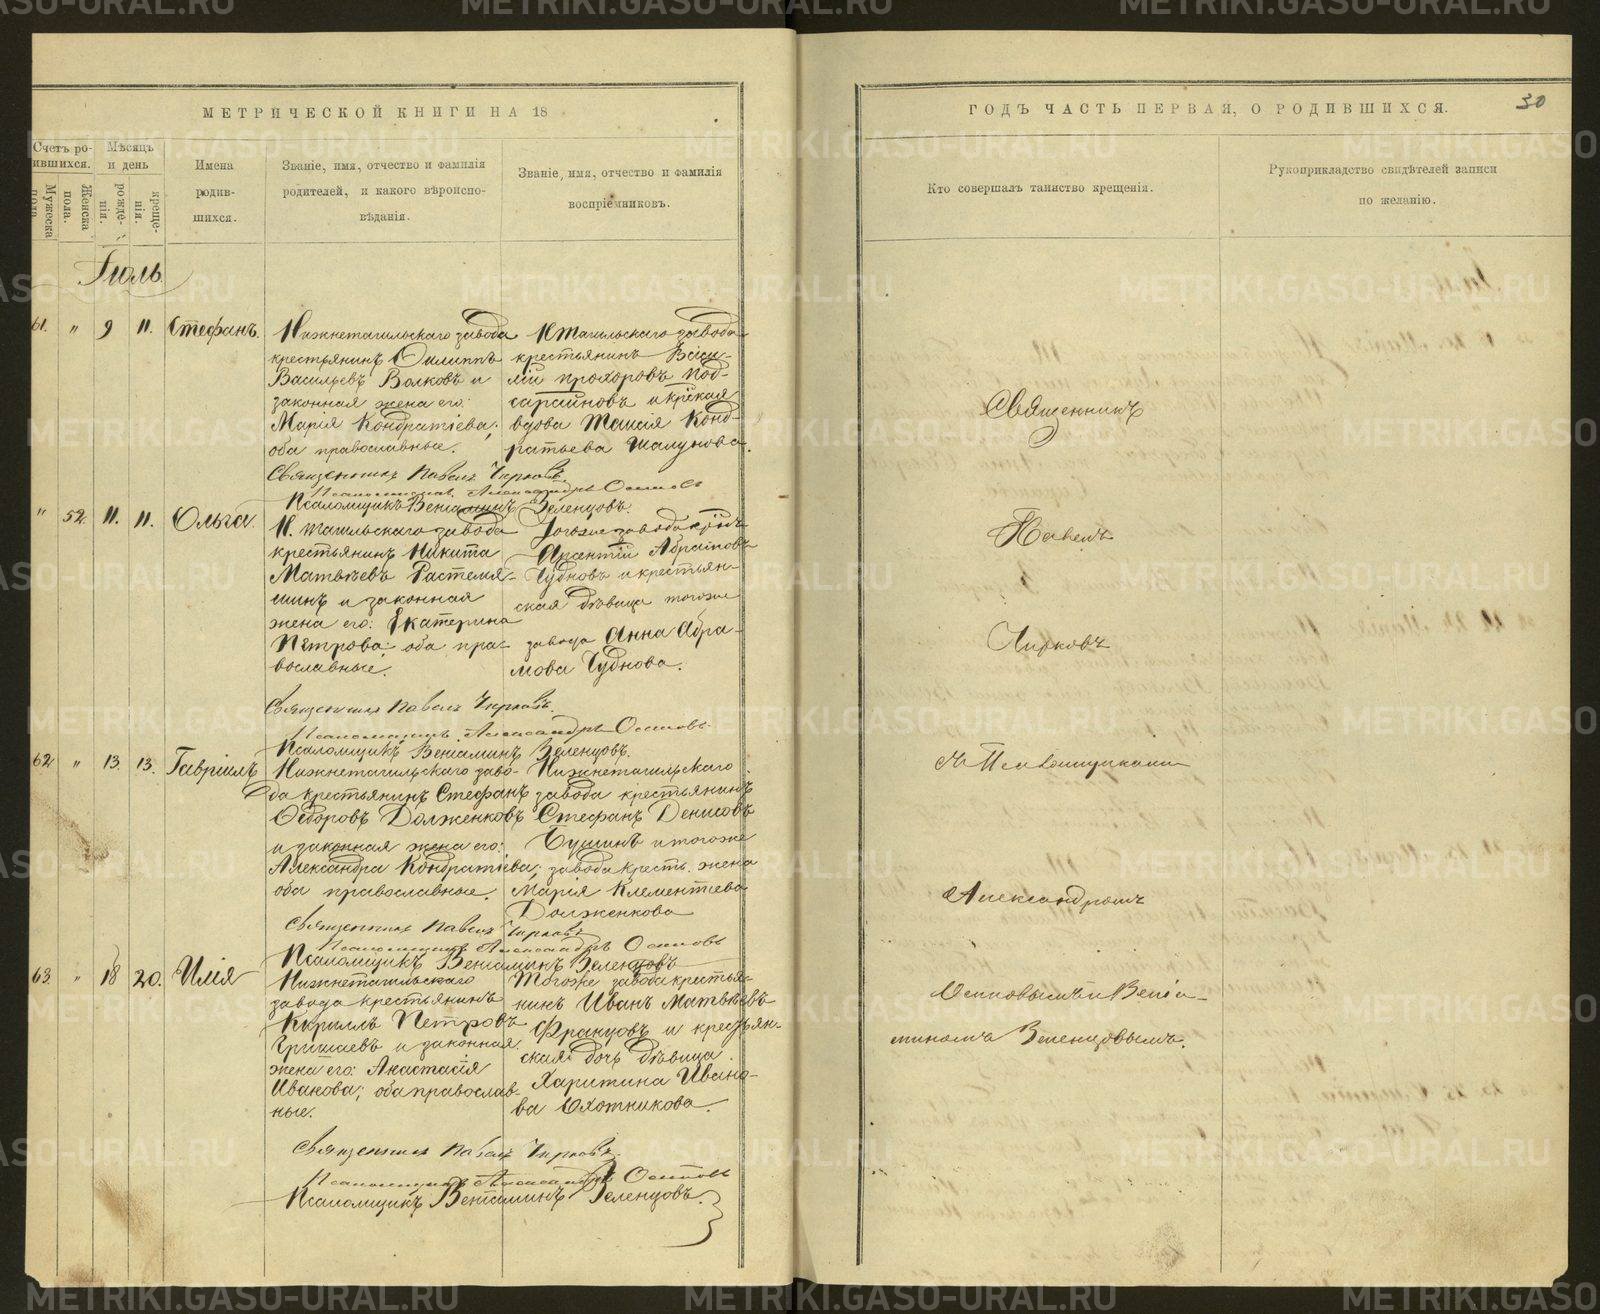 МЕТРИЧЕСКОЙ КНИГИ НА 18
Счетъ ро-
ившихся.
Мужеска
пола.
Женска
пола.
Мѣсяцъ
и день
рожде-
нія.
креще-
нія.
Имена
родив-
шихся.
Званіе, имя, отчество и фамилія
родителей, и какого вѣроиспо-
вѣданія.
Званіе, имя, отчество и фамилія
воспріемниковъ.
Іюль.
61. " 9 11. Стефанъ.
Нижнетагильскаго завода
крестьянинъ Филиппъ
Васильевъ Волковъ и
законная жена его:
Марія Кондратіева;
оба православные.
Н Тагильскаго завода
крестьянинъ Васи-
лій Прохоровъ Под-
сарайновъ и кр̃ская
вдова Таисія Конд-
ратьева Шалунова.
Священникъ Павелъ Чирковъ.
Псаломщикъ Александръ Осиповъ
Псаломщикъ Веніаминъ Зеленцовъ.
" 52. 11. 11. Ольга.
Н. Тагильскаго завода
крестьянинъ Никита
Матвѣевъ Растемя-
шинъ и законная
жена его: Екатерина
Петрова: оба пра-
вославные.
Тогоже завода
Арсентій Абрамовъ
Чудновъ и крестьян-
ская дѣвица тогоже
завода Анна Абра-
мова Чуднова.
Священникъ Павелъ Чирковъ.
Псаломщикъ Александръ Осиповъ.
Псаломщикъ Веніаминъ Зеленцовъ.
62 " 13. 13. Гавріилъ
Нижнетагильскаго заво-
да крестьянинъ Стефанъ
Ѳедоровъ Долженковъ
и законная жена его:
Александра Кондратіева;
оба православные.
Нижнетагильскаго
завода крестьянинъ
Стефанъ Денисовъ
Бушинъ и тогоже
завода кресть. жена
Марія Клементьева
Долженкова
Священникъ Павелъ Чирковъ
Псаломщикъ Александръ Осиповъ
Псаломщикъ Веніаминъ Зеленцовъ
63. " 18 20. Илія
Нижнетагильскаго
завода крестьянинъ
Кириллъ Петровъ
Гришаевъ и законная
жена его: Анастасія
Иванова; оба православ-
ные.
Тогоже завода крестья-
нинъ Иванъ Матвѣевъ
Французовъ и крестьян-
ская дочь дѣвица
Харитина Ивано-
ва Охотникова.
Священникъ Павелъ Чирковъ.
Псаломщикъ Александръ Осиповъ
Псаломщикъ Веніаминъ Зеленцовъ.
ГОДЪ ЧАСТЬ ПЕРВАЯ, О РОДИВШИХСЯ.
30
Кто совершалъ таинство крещенія.
Рукоприкладство свидѣтелей записи
по желанію.
Священникъ
Павелъ
Чирковъ
съ Псаломщиками
Александромъ
Осиповымъ и Веніа-
миномъ Зеленцовымъ.
METRIKI.GASO-URAL.RU